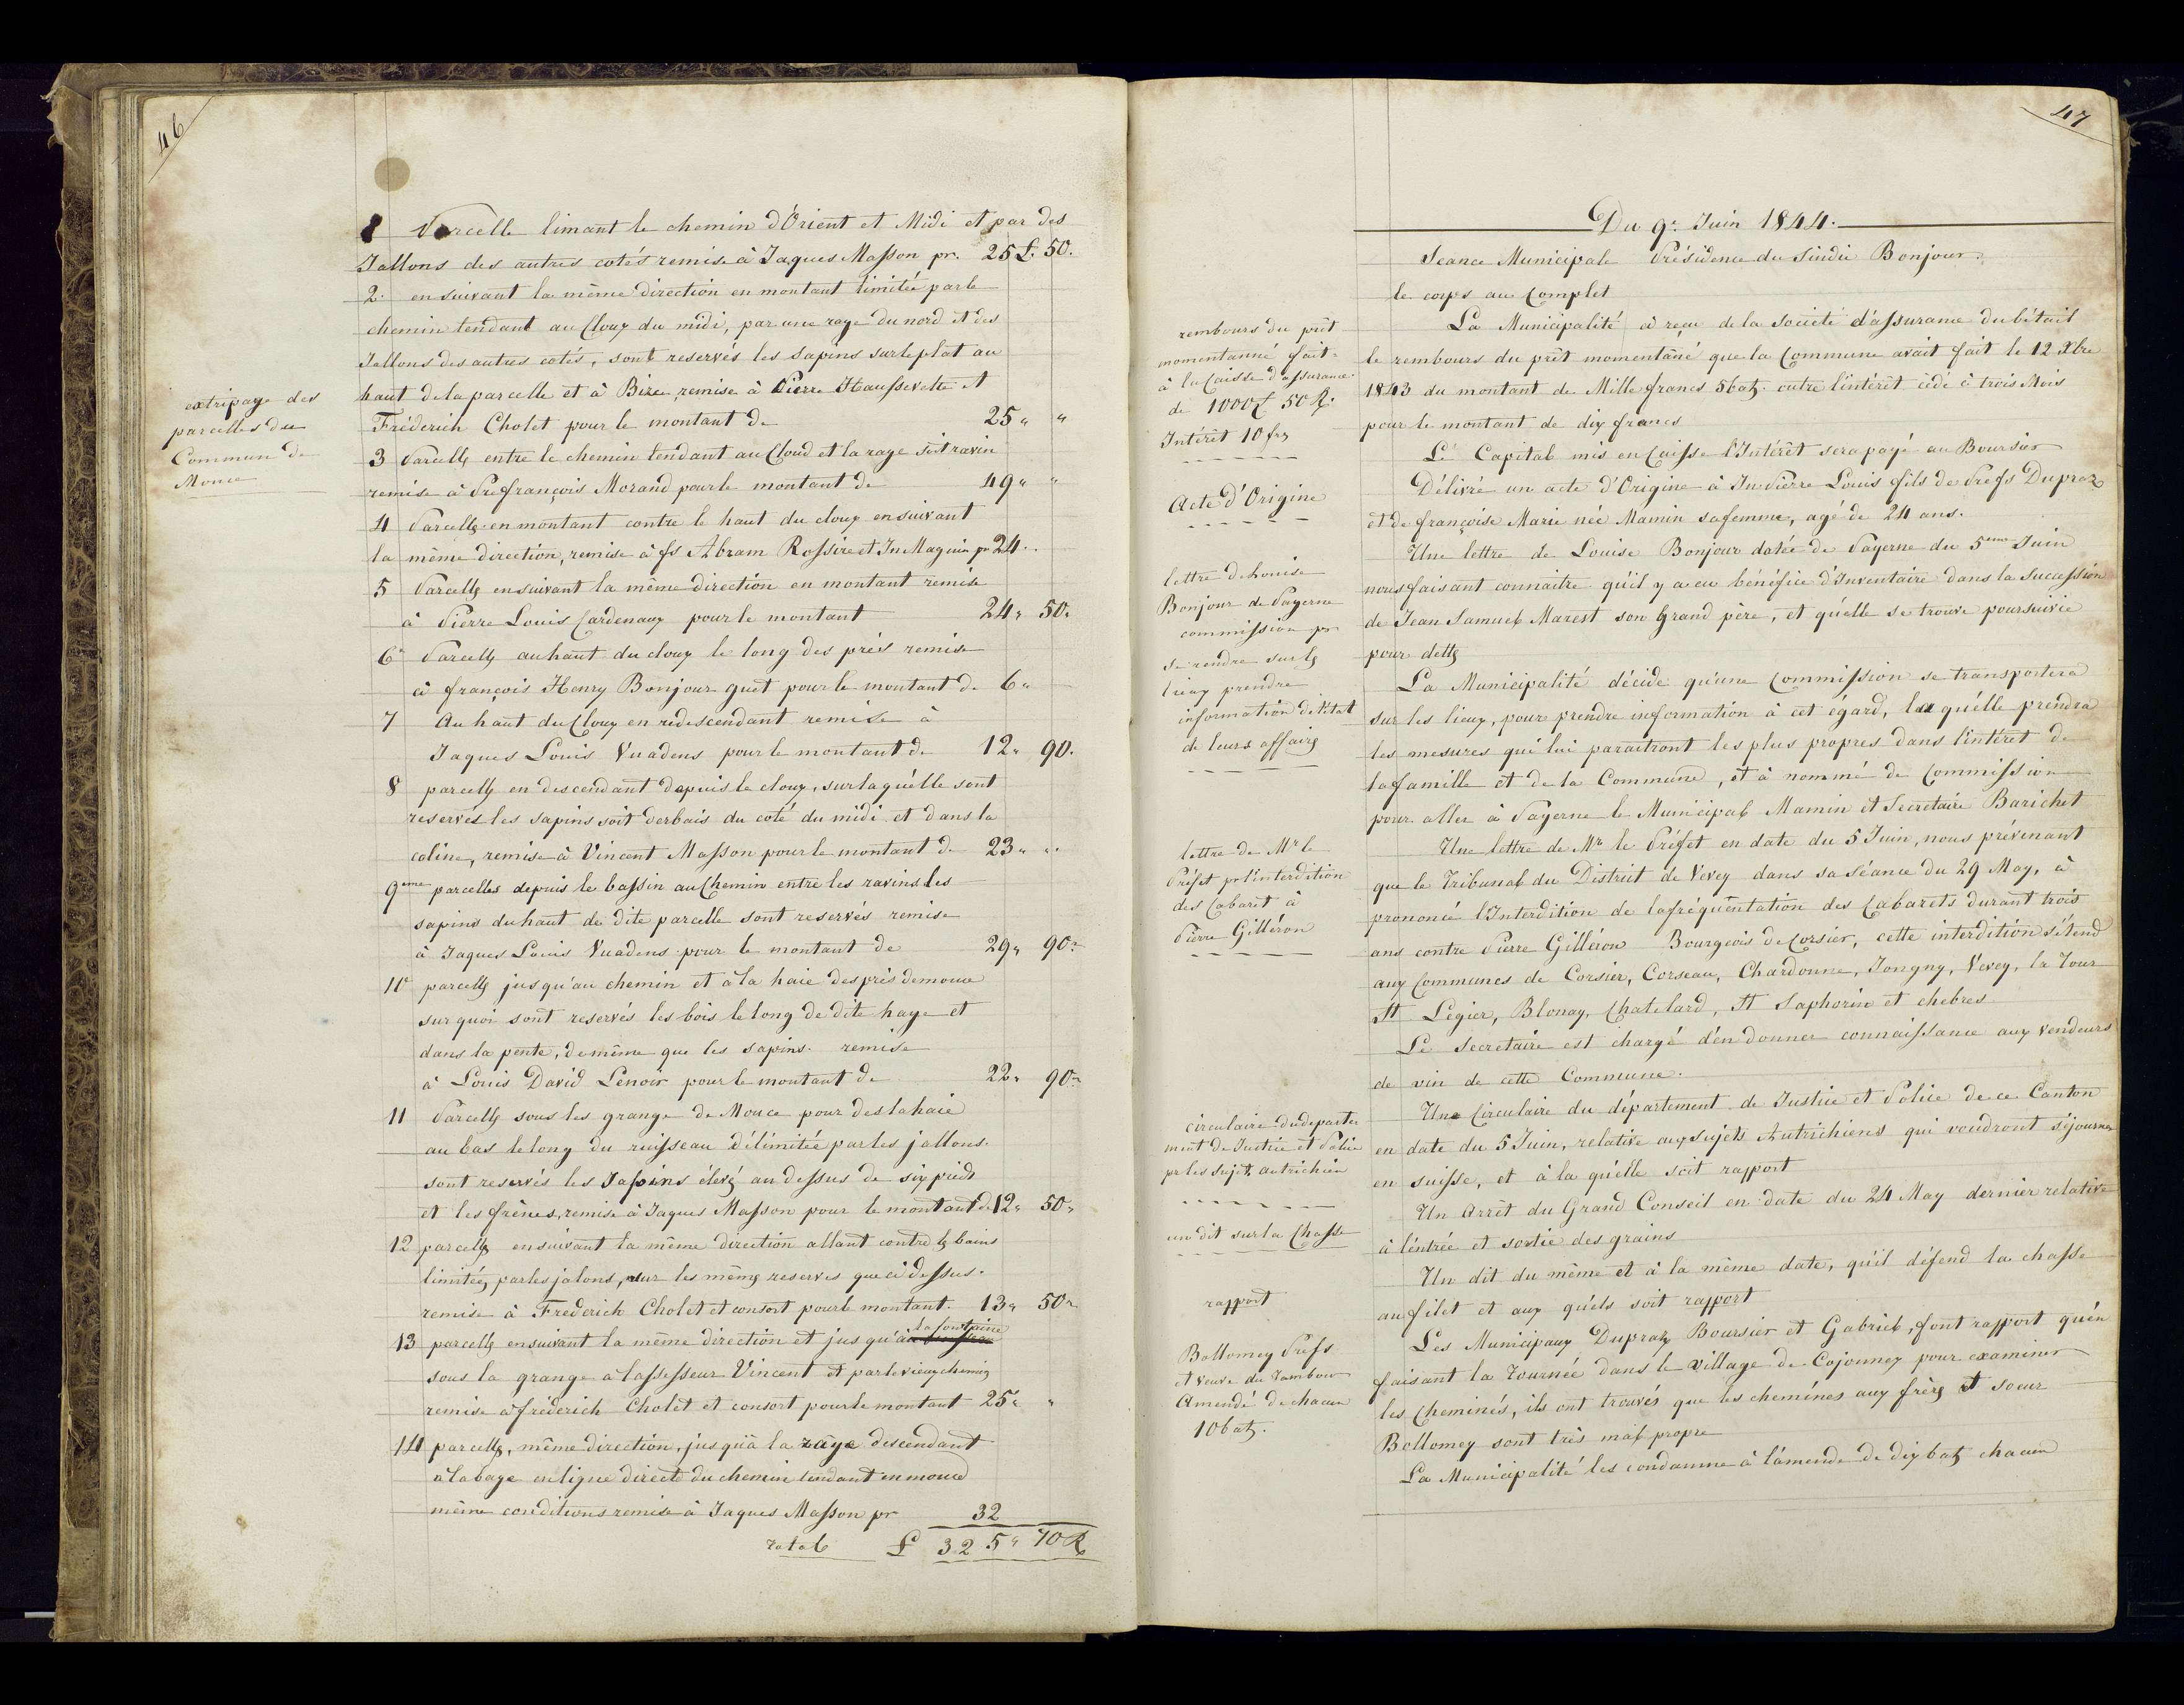 46
extripage des
parcelles du
Commun de
Mouce
1 Parcelle limant le chemin d'Orient et Midi et par des
Jallons des autres cotés remise à Jaques Masson pr. 25 £. 50.
2. en suivant la même direction en montant limitée par le
chemin tendant au Cloux du midi, par une raye du nord et des
Jallons des autres cotés, sont reservés les sapins sur le plat au
haut de la parcelle et à Bize, remise à Pierre Haussevette et
Fréderich Cholet pour le montant de 25 " "
3 Parcelle entre le chemin tendant au Cloud et la raye soit ravin
remise à Pre françois Morand pour le montant de 49 " "
4 Parcelle en montant contre le haut du cloux en suivant
la même direction, remise à fs Abram Rossire et Jn Magnin pr 24 ..
5 Parcelle en suivant la même direction en montant remise
à Pierre Louis Cardenaux pour le montant 24 " 50.
6e Parcelle au haut du cloux le long des prés remise
à françois Henry Bonjour guet pour le montant de 6 "
7 Au haut du Cloux en redescendant remise à
Jaques Louis Vuadens pour le montant de 12 " 90.
8 parcelle en descendant depuis le cloux, sur laquélle sont
reservés les sapins soit derbais du coté du midi et dans la
coline, remise à Vincent Masson pour le montant de 23 " "
9eme parcelles depuis le bassin au Chemin entre les ravins les
sapins du haut de dite parcelle sont reservés remise
à Jaques Louis Vuadens pour le montant de 29 " 90 "
10e parcelle jusqu'au chemin et à la haie des prés de mouce
sur quoi sont reservés les bois le long de dite haye et
dans la pente, de même que les sapins. remise
à Louis David Lenoir pour le montant de 22 " 90 "
11 Parcelle sous les grange de Mouce pour des la haie
au bas le long du ruisseau délimitée par les jallons.
sont reservés les Sapins élevés au dessus de six pieds
et les frênes, remise à Jaques Masson pour le montant de 12 " 50 "
12 parcelle en suivant la même direction allant contre les bains
limitée par les jalons, sur les mêmes reserves que ci dessus.
remise à Frederich Cholet et consort pour le montant. 13 " 50 "
13 parcelle en suivant la même direction et jusqu'à la fontaine
sous la grange à l'assesseur Vincent et par le vieux chemin
remise à fréderich Cholet et consort pour le montant 25 " "
14 parcelle, même direction, jusqu'à la râye descendant
à la baye en ligne directe du chemin tendant en mouce
même conditions remise à Jaques Masson pr 32
Total £ 325 " 70 R
47
Du 9e Juin 1844.
Seance Municipale Présidence du Sindic Bonjour.
le corps au Complet
rembours du prêt
momentanné fait
à la Caisse d'assurance
de 1000 £ 50 R.
Intérêt 10 frs
La Municipalité à reçu de la société d'assurance du bétail
le rembours du prêt momentâné que la Commune avait fait le 12 Xbre
1843 du montant de Mille francs 5 batz. outre l'intérêt cédé à trois Mois
pour le montant de dix francs
Le Capital mis en Caisse l'Intérêt sera payé au Boursier
Acte d'Origine
Délivré un acte d'Origine à Jn Pierre Louis fils de Pre fs Dupraz
et de françoise Marie née Mamin sa femme, agé de 24 ans.
lettre de Louise
Bonjour de Payerne
commission pr
se rendre sur les
lieux prendre
information de létat
de leurs affaires
Une lettre de Louise Bonjour datée de Payerne du 5eme Juin
nous faisant connaitre qu'il y a eu bénéfice d'Inventaire dans la Succession
de Jean Samuel Marest son Grand père, et qu'elle se trouve poursuivie
pour dettes
La Municipalité décide qu'une Commission se transportera
sur les lieux, pour prendre information à cet égard, laquélle prendra
les mesures qui lui paraitront les plus propres dans l'intérêt de
la famille et de la Commune, et à nommé de Commission
pour aller à Payerne le Municipal Mamin et Secretaire Barichet
lettre de Mr le
Préfet pr l'interdition
des Cabaret à
Pierre Gilléron
Une lettre de Mr le Préfet en date du 5 Juin, nous prévenant
que le Tribunal du District de Vevey dans sa séance du 29 May, à
prononcé l'Interdition de la fréquêntation des Cabarets durant trois
ans contre Pierre Gilléron Bourgeois de Corsier, cette interdition s'étend
aux Communes de Corsier, Corseau, Chardonne, Jongny, Vevey, la Tour
St Légier, Blonay, Chatelard, St Saphorin et chebres
Le Secretaire est chargé d'en donner connaissance aux Vendeurs
de vin de cette Commune.
circulaire du departe
ment de Justice et Police
pr les sujet autrichien
Une Circulaire du département de Justice et Police de ce Canton
en date du 5 Juin, relative aux sujets Autrichiens qui voudront séjourner
en suisse, et à la qu'élle soit rapport
Un Arrêt du Grand Conseil en date du 24 May dernier relative
à l'éntrée et sortie des grains
un dit sur la Chasse
Un dit du même et à la même date, qu'il défend la chasse
au filet et aux qu'els soit rapport
rapport
Bollomey Pre fs
et veuve du Tambour
Amendé de chacun
10 batz.
Les Municipaux Dupraz Boursier et Gabriel, font rapport qu'én
faisant la Tournée dans le Village de Cojonnex pour examiner
les Cheminés, ils ont trouvés que les chemínes aux frères et soeur
Bollomey sont très mal propre
La Municipalité les condamne à l'amende de dix batz chacun